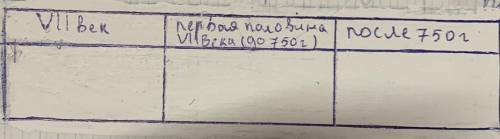 VII век
первая половина
VIII века (до 750г)
после 750г